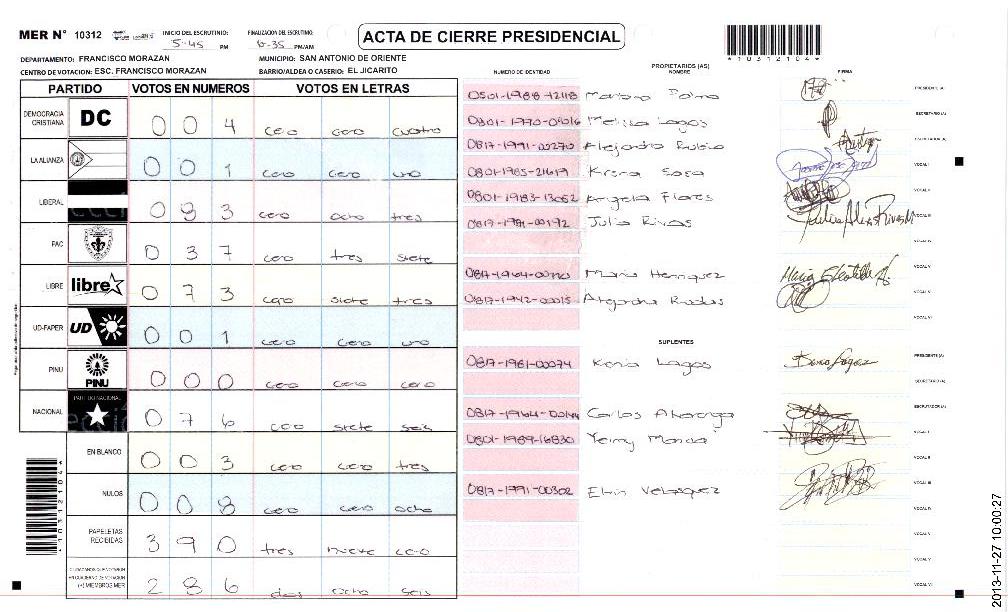 MER N° 10312 INICIO DEL ESCRUTINIO: 5:45 PM FINALIZACION DEL ESCRUTINIO: 6:35 PM/AM
ACTA DE CIERRE PRESIDENCIAL
*10312104*
DEPARTAMENTO: FRANCISCO MORAZAN MUNICIPIO: SAN ANTONIO DE ORIENTE
CENTRO DE VOTACION: ESC. FRANCISCO MORAZAN BARRIO/ALDEA O CASERIO: EL JICARITO
PARTIDO VOTOS EN NUMEROS VOTOS EN LETRAS
DEMOCRACIA CRISTIANA DC 0 0 4 cero cero cuatro
LA ALIANZA 0 0 1 cero cero uno
LIBERAL 0 8 3 cero ocho tres
PAC 0 3 7 cero tres siete
LIBRE libre 0 7 3 cero siete tres
UD-FAPER UD 0 0 1 cero cero uno
PINU PINU 0 0 0 cero cero cero
NACIONAL PARTIDO NACIONAL 0 7 6 cero siete seis
EN BLANCO 0 0 3 cero cero tres
NULOS 0 0 8 cero cero ocho
PAPELETAS RECIBIDAS 3 9 0 tres nueve cero
CIUDADANOS QUE VOTARON
EN CUADERNO DE VOTACION
(+) MIEMBROS MER 2 8 6 dos ocho seis
NUMERO DE IDENTIDAD PROPIETARIOS (AS) NOMBRE FIRMA
0501-1988-12118 Mariano Palma PRESIDENTE (A)
0801-1970-05016 Melissa Lagos SECRETARIO (A)
0817-1991-00270 Alejandro Rubio ESCRUTADOR (A)
0801-1985-21619 Sosa VOCAL I
0801-1983-13062 Angela Flores VOCAL II
0817-1981-00192 Julia Rivas VOCAL III
VOCAL IV
Maria Henriquez VOCAL V
0817-1942-00015 Alejandra VOCAL VI
SUPLENTES
0817-1961-00074 Kenia Lagos PRESIDENTE (A)
SECRETARIO (A)
Carlos ESCRUTADOR (A)
0801-1989-16830 Yeimy VOCAL I
VOCAL II
0817-1991-00302 Elvin Velasquez VOCAL III
VOCAL IV
VOCAL V
VOCAL VI
*10312104*
2013-11-27 10:00:27